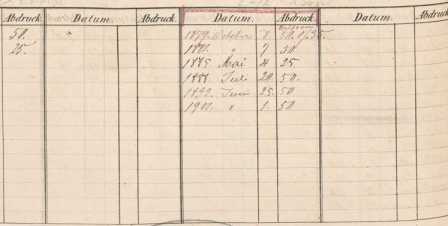 Abdruck. Datum. Abdruck. Datum. Abdruck. Datum. Abdruck
50. "
25.
1879. October 1.
1881. " 7 50
1885 Mai 4 25
1888 Juli 20. 50.
1892. Juni 25. 50
1901. " 1. 50